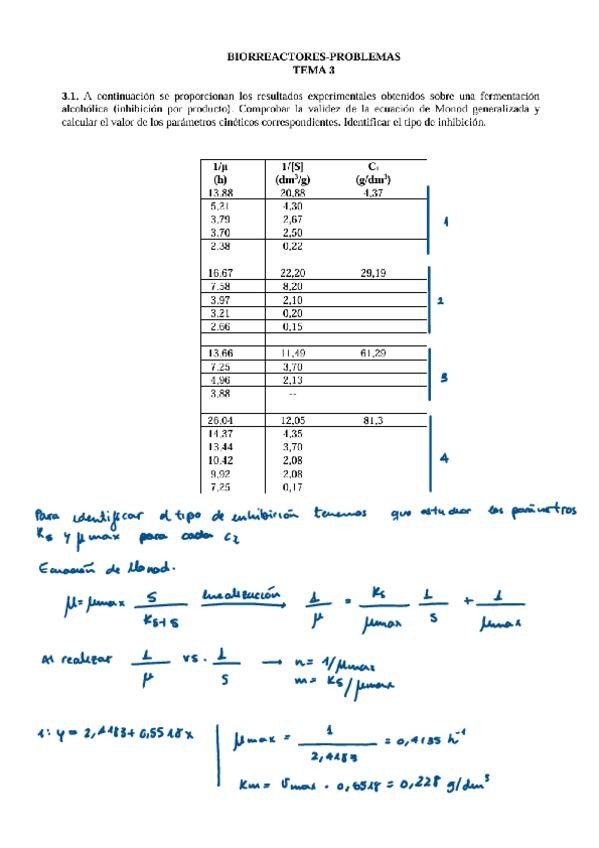 BIORREACTORES-PROBLEMAS
TEMA 3
3.1. A continuación se proporcionan los resultados experimentales obtenidos sobre una fermentación
alcohólica (inhibición por producto). Comprobar la validez de la ecuación de Monod generalizada y
calcular el valor de los parámetros cinéticos correspondientes. Identificar el tipo de inhibición.
1/μ 1/[S]
(h) (dm³/g) (g/dm³)
13,88 20,88 4,37
5,21 4,30
3,79 2,67
3,70 2,50
2,38 0,22
1
16,67 22,20 29,19
7,58 8,20
3,97 2,10
3,21 0,20
2,66 0,15
2
13,66 11,49 61,29
7,25 3,70
4,96 2,13
3,88 --
3
26,04 12,05 81,3
14,37 4,35
13,44 3,70
10,42 2,08
9,92 2,08
7,25 0,17
4
Para identificar el tipo de inhibición tenemos que estudiar los parámetros
Ks y μmax para cada c2
Ecuación de Monod.
μ = μmax S / Ks+s linealización 1/μ = Ks/μmax 1/s + 1/μmax
Al realizar 1/μ vs. 1/s → n = 1/μmax
m = Ks/μmax
1: y = 2,4183 + 0,5518x μmax = 1 / 2,4183 = 0,4135 h⁻¹
Km = · 0,5518 = 0,228 g/dm³